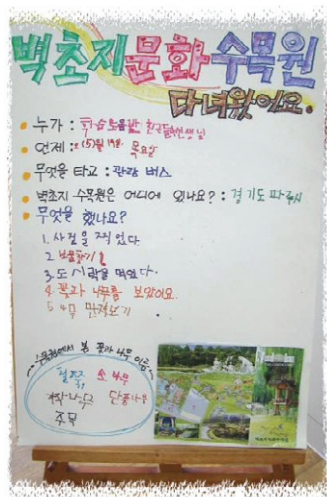 벽초지문화수목원
다녀왔어요.
누가 : 학습도움반 친구들, 선생님
언제 : (5)월 19일 목요일
무엇을 타고 : 관광 버스
벽초지 수목원은 어디에 있나요? : 경기도 파주시
무엇을 했나요?
1. 사진을 찍었다
2. 보물찾기
3. 도시락을 먹었다.
4. 꽃과 나무를 보았어요.
5. 나무 만져보기
수목원에서 본 꽃과 나무 이름
철쭉 소나무
자작나무 단풍나무
주목